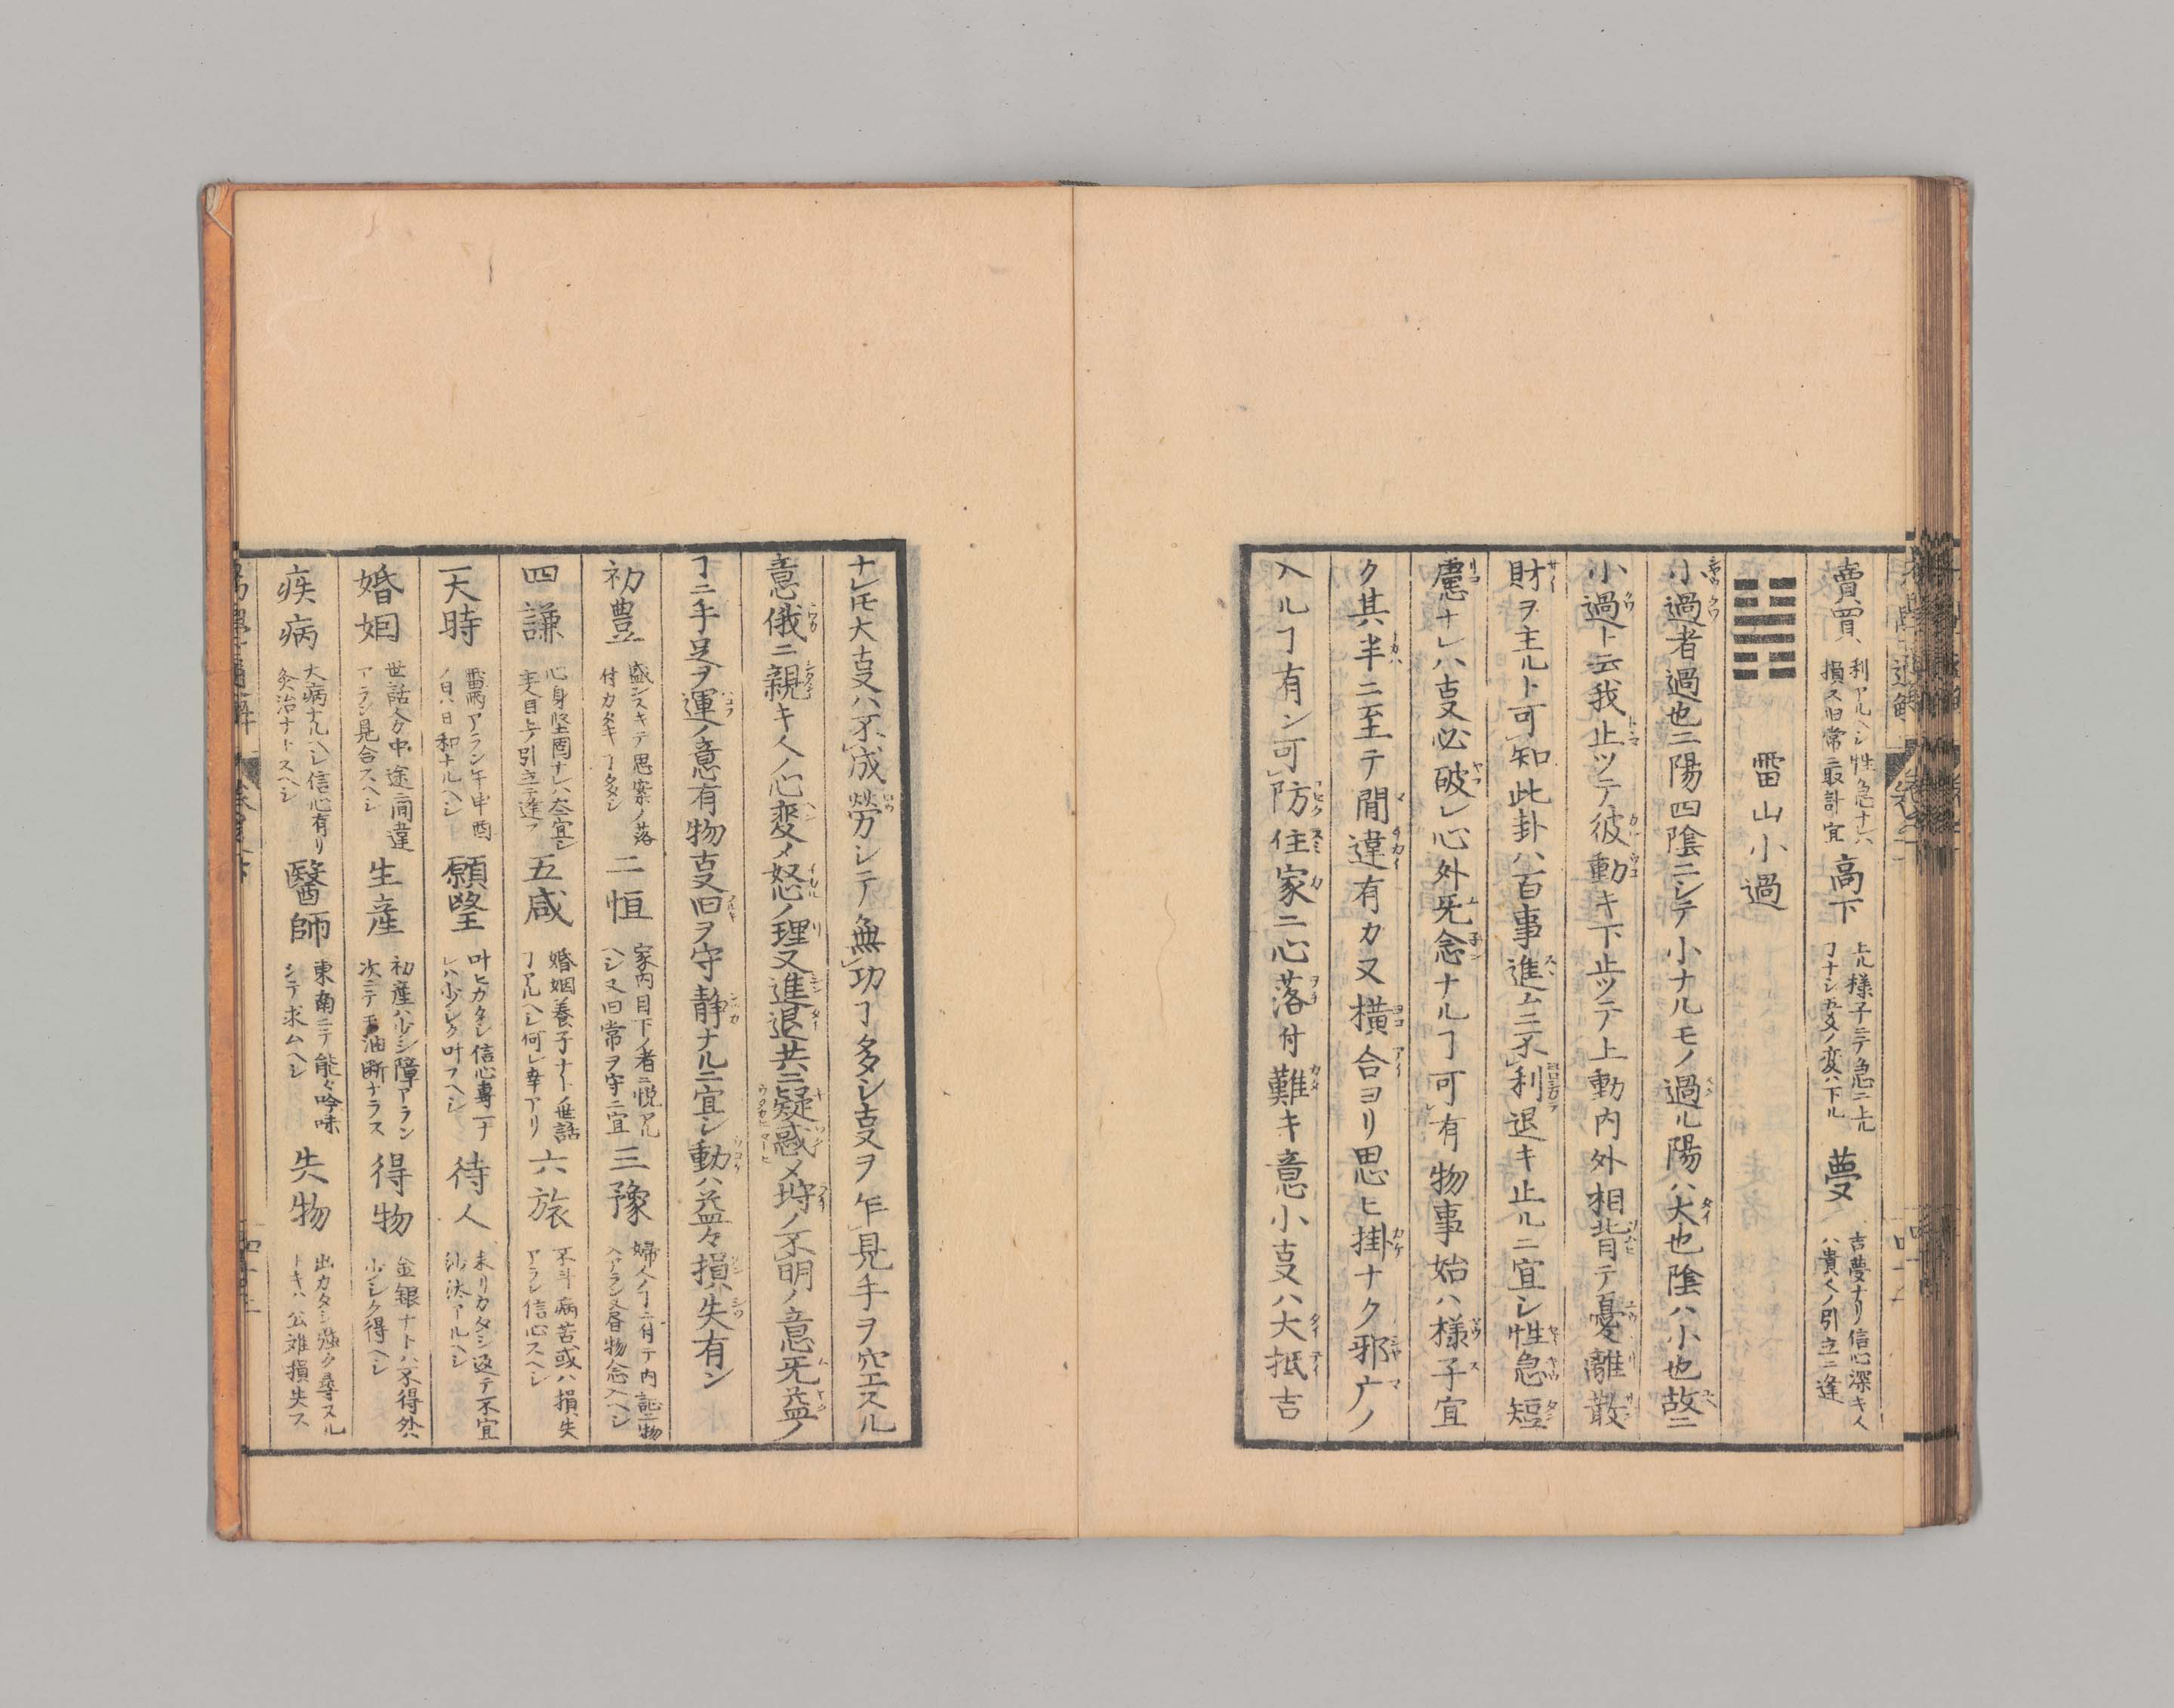 賣買 利アルヘシ性急ナレハ
損ス旧常ニ取計宜
高下 上ル様子ニテ急ニ上ル
ヿナシ五爻ノ変ハ下ル
夢 吉夢ナリ信心深キ人
ハ貴人ノ引立ニ逢
雷山小過
小過者過也二陽四陰ニシテ小ナルモノ過ル陽ハ大也陰ハ小也故ニ
小過ト云我止ツテ彼動キ下止ツテ上動内外相背テ憂離散
財ヲ主ルト可知此卦ハ百事進ムニ不利退キ止ルニ宜シ性急短
慮ナレハ㕝必破レ心外旡念ナルヿ可有物事始ハ様子宜
ク其半ニ至テ間違有カ又横合ヨリ思ヒ掛ナク邪广ノ
入ルヿ有ン可防住家ニ心落付難キ意小㕝ハ大抵吉
ナレ𪜈大㕝ハ不成勞シテ無功ヿ多シ㕝ヲ乍見手ヲ空スル
意俄ニ親キ人ノ心変メ怒ノ理又進退共ニ疑惑メ埒ノ不明ノ意旡益ノ
ヿニ手足ヲ運ノ意有物㕝旧ヲ守静ナルニ宜シ動ハ益々損失有ン
初豊 盛シスキテ思案ノ落
付カタキヿ多シ
二恒 家内目下ノ者ニ悦アル
ヘシ又旧常ヲ守ニ宜
三豫 婦人ノヿニ付テ内証ニ物
入アラン又昏物念入ヘシ
四謙 心身堅固ナレハ大宜シ
主人目上ノ引立ニ逢フ
五咸 婚姻養子ナトノ世話
ヿアルヘシ何レ幸アリ
六旅 不斗病苦或ハ損失
アラン信心スヘシ
天時 雷雨アラン午申酉
ノ日ハ日和ナルヘシ
願望 叶ヒカタシ信心專一ナ
レハ少シク叶フヘシ
待人 来リカタシ返テ不宜
沙汰アルヘシ
婚姻 世話人分中途ニ間違
アラン見合スヘシ
生産 初産ハ少シ障アラン
次ニテモ油断ナラス
得物 金銀ナトハ不得外ハ
少シク得ヘシ
疾病 大病ナルヘシ信心有リ
灸治ナトスヘシ
醫師 東南ニテ能々吟味
シテ求ムヘシ
失物 出カタシ強ク尋スル
トキハ公難損失ス